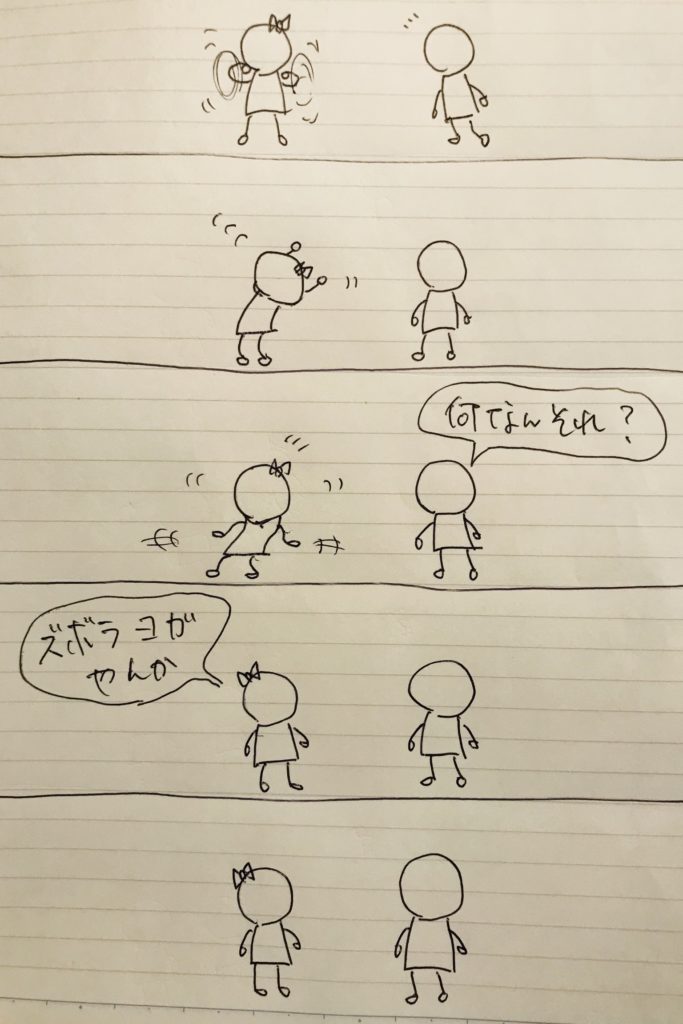 何なんそれ?
ズボラヨガ
やんか